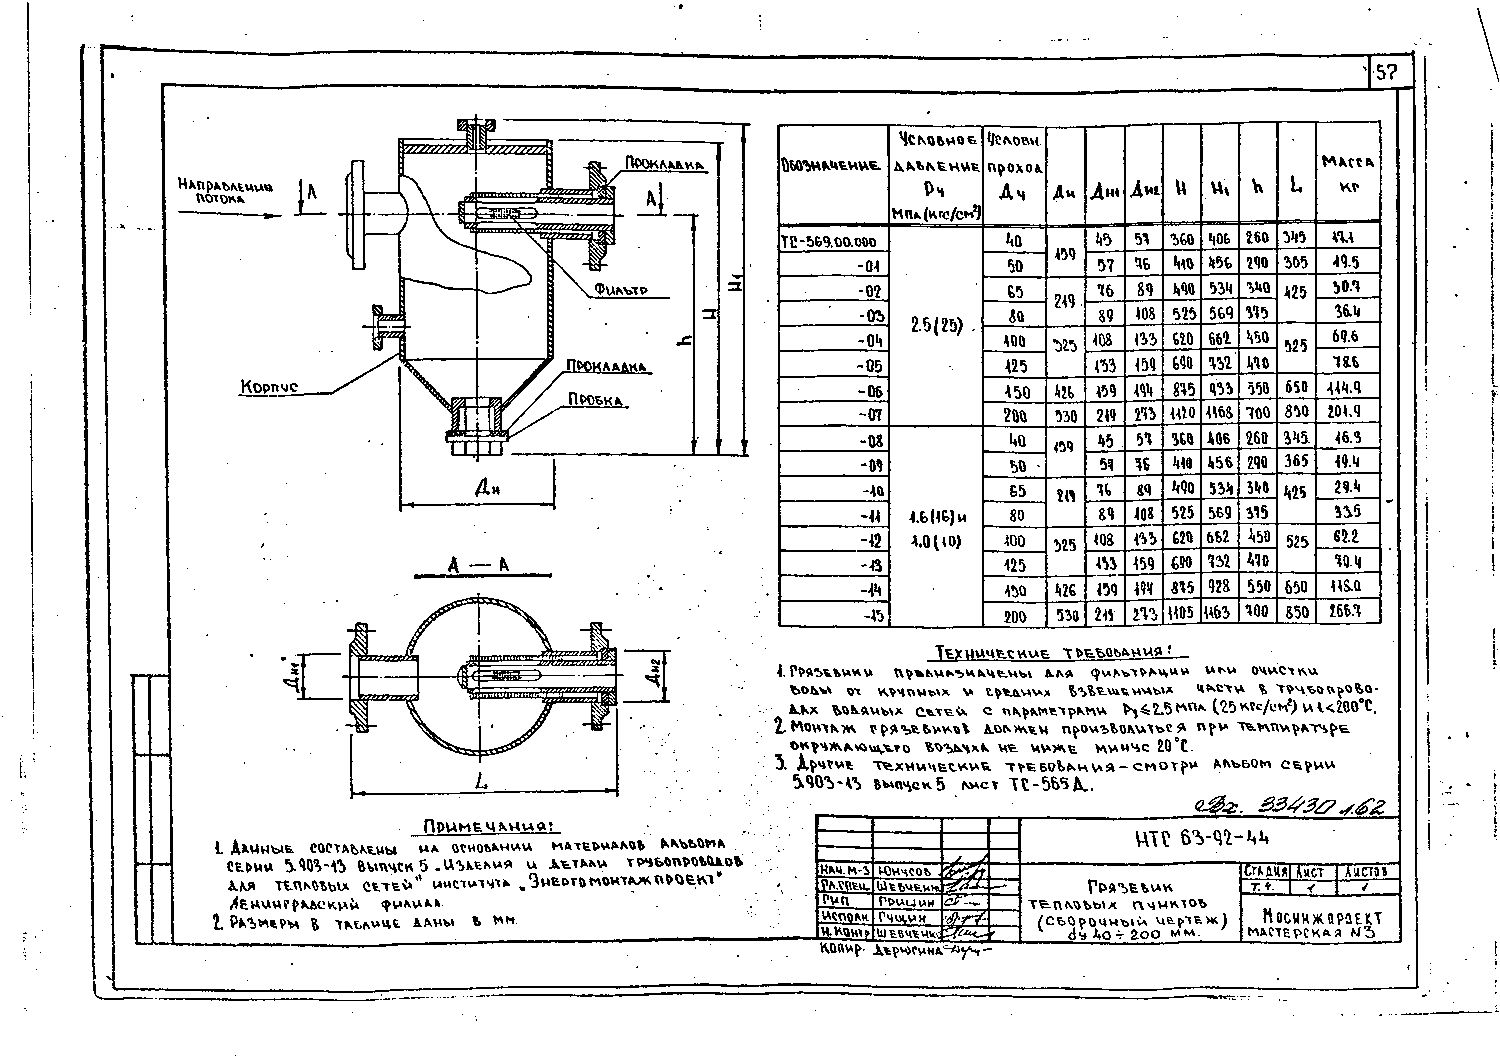 57
НАПРАВЛЕНИЕ
ПОТОКА
А
А
ПРОКЛАДКА
ФИЛЬТР
КОРПУС
ПРОКЛАДКА
ПРОБКА
h
H
H1
Дн
А — А
Дн1
Дн2
L
ОБОЗНАЧЕНИЕ УСЛОВНОЕ ДАВЛЕНИЕ Ру МПА (кгс/см²) УСЛОВН. ПРОХОД Ду Дн Дн1 Дн2 H H1 h L МАССА КГ
ТС-569.00.000 2.5(25) 40 159 45 57 360 406 260 345 17.1
-01 50 57 76 410 456 290 365 19.5
-02 65 219 76 89 490 534 340 425 30.7
-03 80 89 108 525 569 375 36.4
-04 100 325 108 133 620 662 450 525 69.6
-05 125 133 159 690 732 470 78.6
-06 150 426 159 194 875 933 550 650 114.9
-07 200 530 219 273 1120 1168 700 850 201.9
-08 1.6(16) и 1.0(10) 40 159 45 57 360 406 260 345 16.3
-09 50 57 76 410 456 290 365 19.4
-10 65 219 76 89 490 534 340 425 29.4
-11 80 89 108 525 569 375 33.5
-12 100 325 108 133 620 662 450 525 62.2
-13 125 133 159 690 732 470 70.4
-14 150 426 159 194 875 928 550 650 116.0
-15 200 530 219 273 1105 1163 700 850 266.7
ТЕХНИЧЕСКИЕ ТРЕБОВАНИЯ:
1. ГРЯЗЕВИКИ ПРЕДНАЗНАЧЕНЫ ДЛЯ ФИЛЬТРАЦИИ ИЛИ ОЧИСТКИ
ВОДЫ ОТ КРУПНЫХ И СРЕДНИХ ВЗВЕШЕННЫХ ЧАСТИ В ТРУБОПРОВО-
ДАХ ВОДЯНЫХ СЕТЕЙ С ПАРАМЕТРАМИ Ру≤2.5 МПА (25 КГС/СМ²) И t<200°С.
2. МОНТАЖ ГРЯЗЕВИКОВ ДОЛЖЕН ПРОИЗВОДИТЬСЯ ПРИ ТЕМПИРАТУРЕ
ОКРУЖАЮЩЕГО ВОЗДУХА НЕ НИЖЕ МИНУС 20°С.
3. ДРУГИЕ ТЕХНИЧЕСКИЕ ТРЕБОВАНИЯ – СМОТРИ АЛЬБОМ СЕРИИ
5.903-13 ВЫПУСК 5 ЛИСТ ТС-565 Д.
Вх. 33430 л.62
ПРИМЕЧАНИЯ:
1. ДАННЫЕ СОСТАВЛЕНЫ НА ОСНОВАНИИ МАТЕРИАЛОВ АЛЬБОМА
СЕРИИ 5.903-13 ВЫПУСК 5 „ИЗДЕЛИЯ И ДЕТАЛИ ТРУБОПРОВОДОВ
ДЛЯ ТЕПЛОВЫХ СЕТЕЙ" ИНСТИТУТА „ЭНЕРГОМОНТАЖПРОЕКТ"
ЛЕНИНГРАДСКИЙ ФИЛИАЛ.
2. РАЗМЕРЫ В ТАБЛИЦЕ ДАНЫ В ММ.
НТС 63-92-44
НАЧ. М-3 ЮНУСОВ
ГЛ.СПЕЦ ШЕВЧЕНКО
ГИП ГРИЦИН
ИСПОЛН ГУЩИН
Н.КОНТР ШЕВЧЕНКО
КОПИР. ДЕРЮГИНА
ГРЯЗЕВИК
ТЕПЛОВЫХ ПУНКТОВ
(СБОРОЧНЫЙ ЧЕРТЕЖ)
dу 40÷200 ММ.
СТАДИЯ ЛИСТ ЛИСТОВ
МОСИНЖПРОЕКТ
МАСТЕРСКАЯ N3